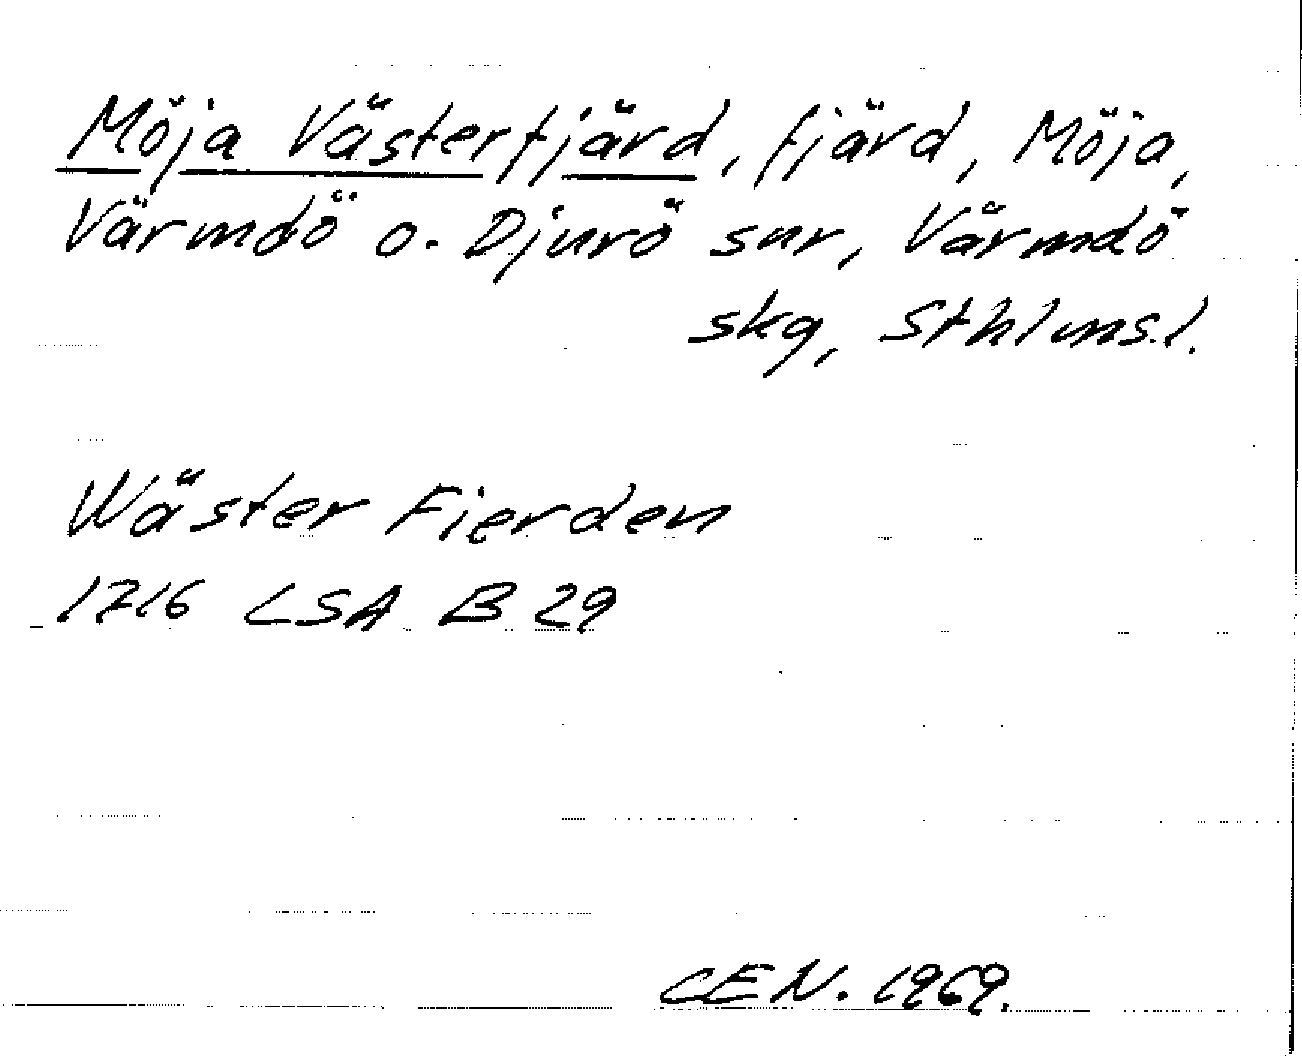 Möja Västerfjärd, fjärd, Möja,
Värmdö o. Djurö snr, Värmdö
skg, Sthlms.l.
Wäster Fierden
1716 LSA B 29
CEN. 1969.